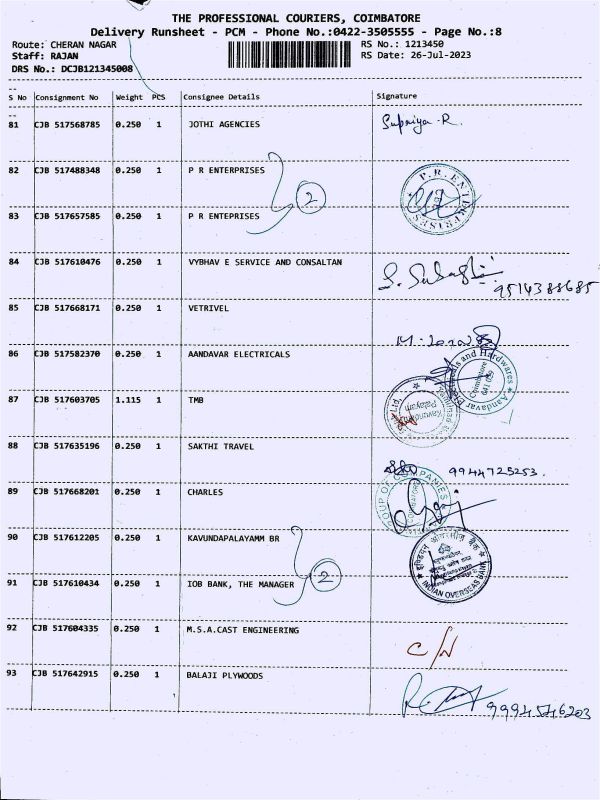 THE PROFESSIONAL COURIERS, COIMBATORE
Delivery Runsheet - PCM - Phone No.:0422-3505555 - Page No.:8
Route: CHERAN NAGAR RS No.: 1213450
Staff: RAJAN RS Date: 26-Jul-2023
DRS No.: DCJB121345008
S No Consignment No Weight PCS Consignee Details Signature
81 CJB 517568785 0.250 1 JOTHI AGENCIES Supriya.R.
82 CJB 517488348 0.250 1 P R ENTERPRISES P.R. ENTERPRISES
2
83 CJB 517657585 0.250 1 P R ENTEPRISES
84 CJB 517610476 0.250 1 VYBHAV E SERVICE AND CONSALTAN
9514388685
85 CJB 517668171 0.250 1 VETRIVEL
86 CJB 517582370 0.250 1 AANDAVAR ELECTRICALS Aandavar Electricals and Hardwares Coimbatore
87 CJB 517603705 1.115 1 TMB
88 CJB 517635196 0.250 1 SAKTHI TRAVEL 9944725253.
89 CJB 517668201 0.250 1 CHARLES GROUP OF COMPANIES COIMBATORE
90 CJB 517612205 0.250 1 KAVUNDAPALAYAMM BR
2
91 CJB 517610434 0.250 1 IOB BANK, THE MANAGER INDIAN OVERSEAS BANK
92 CJB 517604335 0.250 1 M.S.A.CAST ENGINEERING C/N
93 CJB 517642915 0.250 1 BALAJI PLYWOODS 9994546203